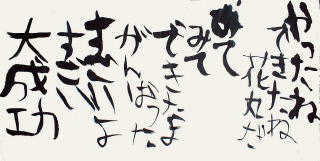 やったね
できたね
花丸だ
めて
みて
できたよ
がんばった
まいいよ
すごい
大成功